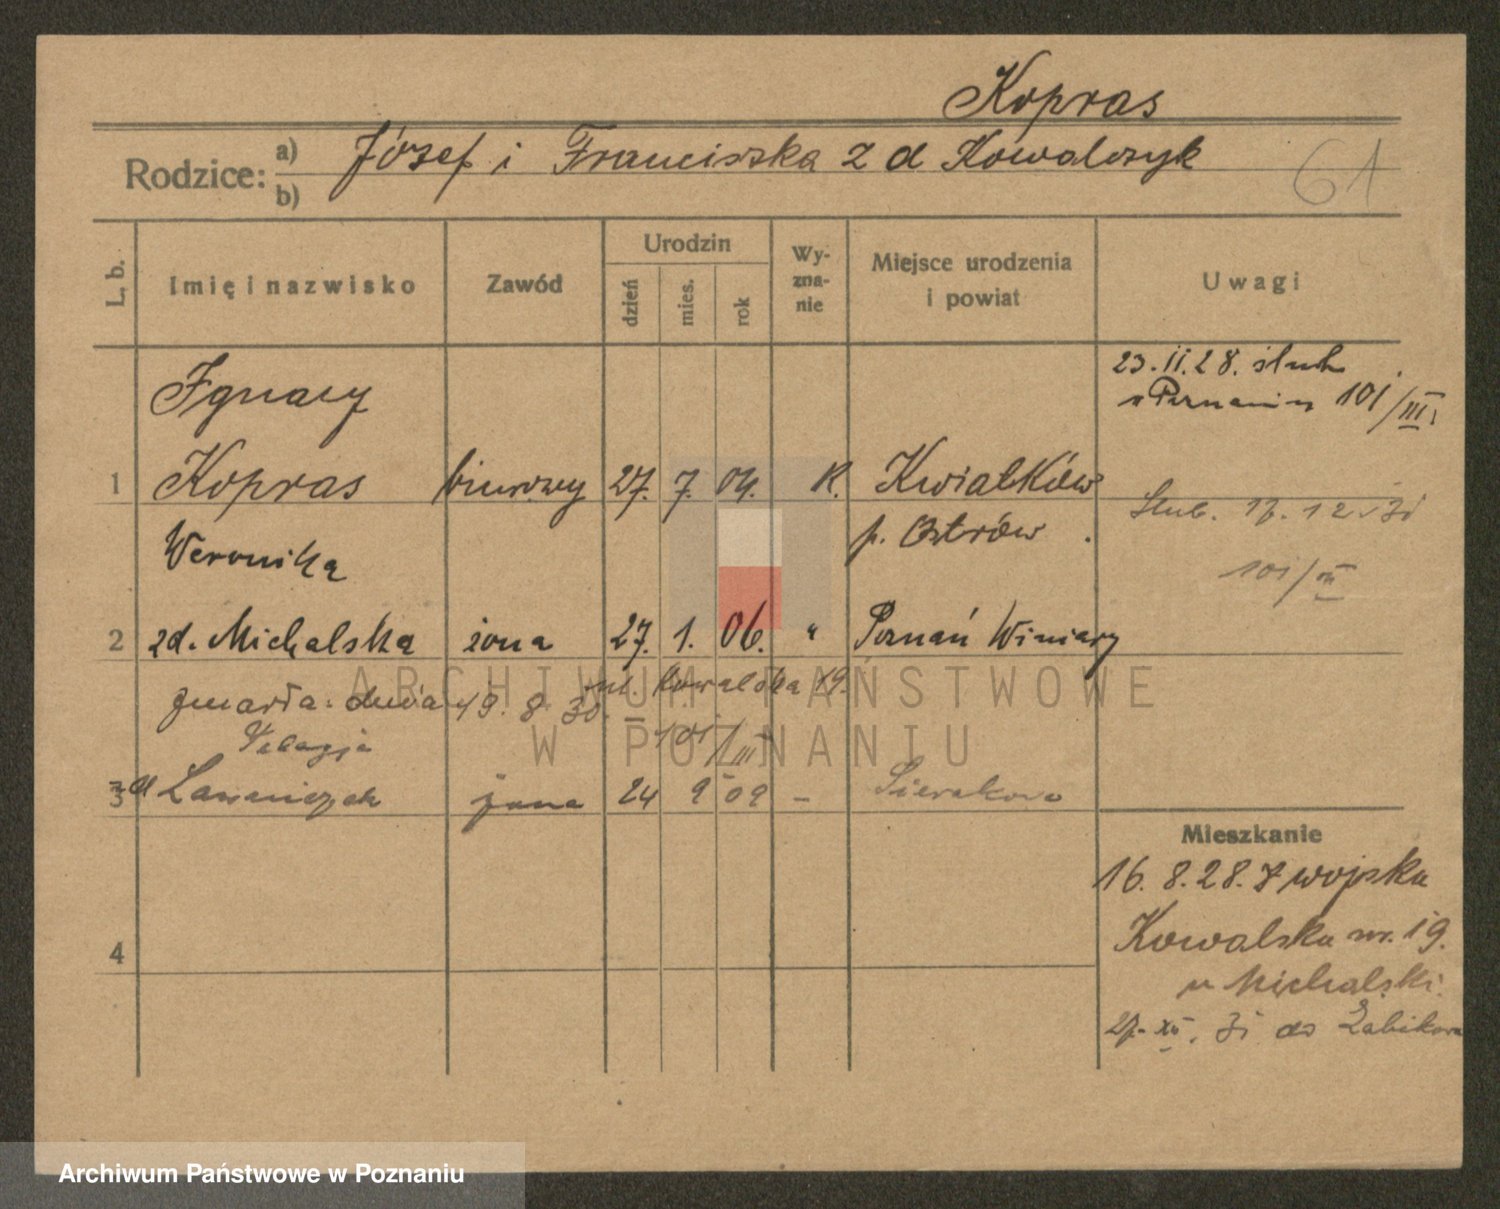 Kopras
Rodzice: a) b) Józef i Franciszka z d Kowalczyk
61
L. b. Imię i nazwisko Zawód Urodzin dzień mies. rok Wy-zna-nie Miejsce urodzenia i powiat Uwagi
23.II.28. ślub
w Poznaniu 101/III
Ignacy
1 Kopras biurowy 27. 7. 04. R. Kwiatków
p. Ostrów
Ślub. 17. 12. 31
101/III
Weronika
2 zd. Michalska żona 27. 1. 06. " Poznań Winiary
zmarła dnia 19. 8. 30. ul. Kowalska 19.
101/III
Pelagja
3 zd Ławniczak żona 24 9 09 – Sierakowo
4
Mieszkanie
16. 8. 28. z wojska
Kowalska nr. 19.
u Michalski.
27. XII. 31 do Żabikowa
ARCHIWUM PAŃSTWOWE
W POZNANIU
Archiwum Państwowe w Poznaniu